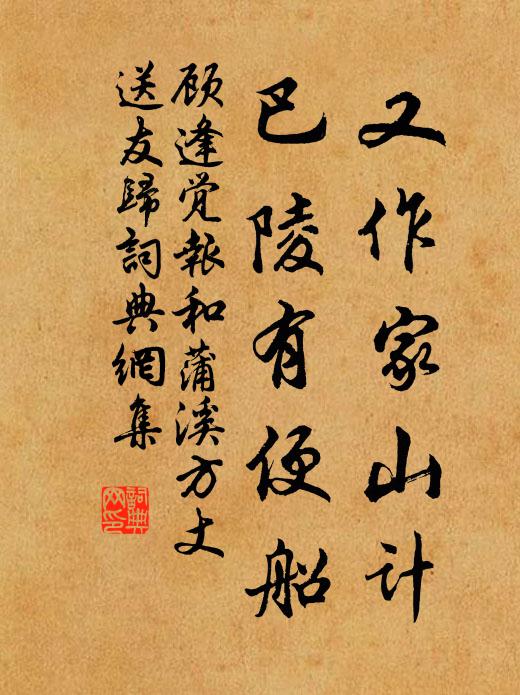 又作家山计
巴陵有便船
顾逢党报和蒲溪方丈
送友歸詞典網集
詞典網印